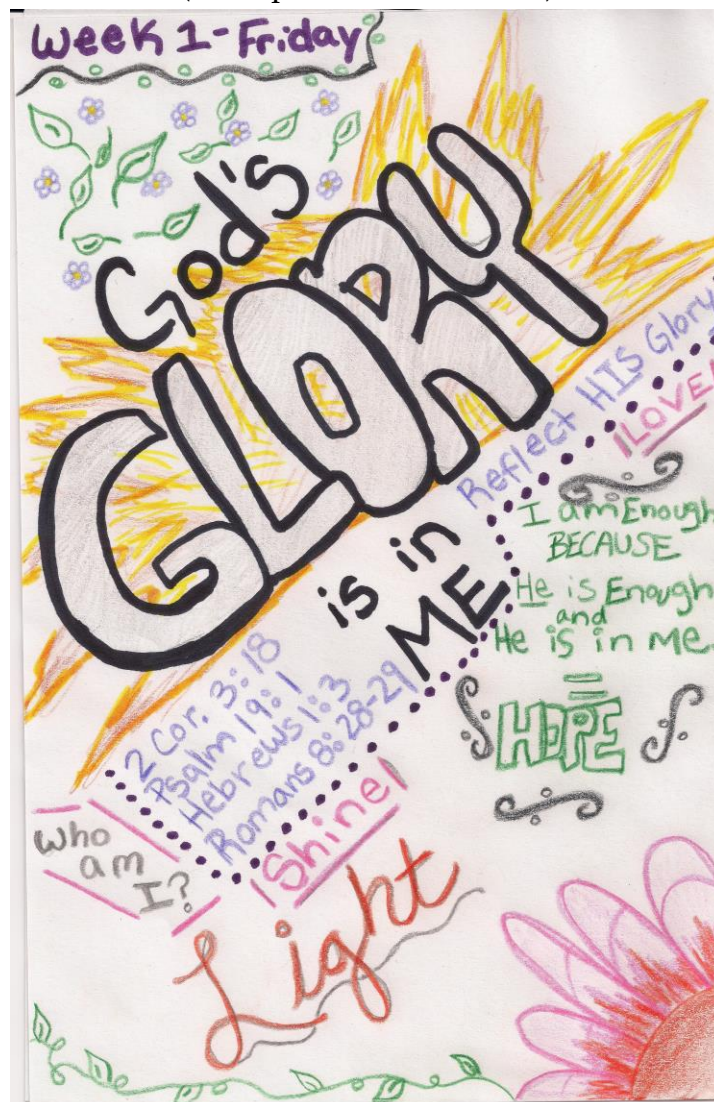 Week 1-Friday
God's
GLORY
is in
ME
Reflect HIS Glory
LOVE!
I am Enough
BECAUSE
He is Enough
and
He is in me.
=
HOPE
2 Cor. 3:18
Psalm 19:1
Hebrews 1:3
Romans 8:28-29
Shine!
Who
am
I?
Light